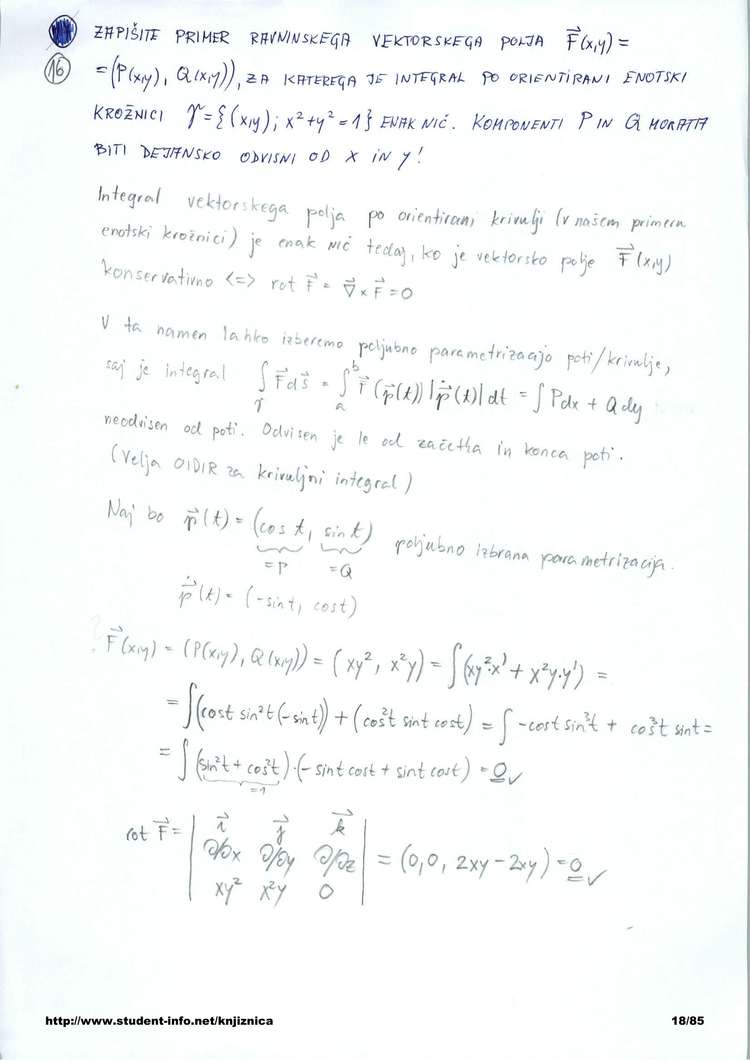 16 ZAPIŠITE PRIMER RAVNINSKEGA VEKTORSKEGA POLJA F⃗(x,y) =
= (P(x,y), Q(x,y)), ZA KATEREGA JE INTEGRAL PO ORIENTIRANI ENOTSKI
KROŽNICI γ = {(x,y); x²+y² = 1} ENAK NIČ. KOMPONENTI P IN Q MORATA
BITI DEJANSKO ODVISNI OD X IN Y!
Integral vektorskega polja po orientirani krivulji (v našem primeru
enotski krožnici) je enak NIČ tedaj, ko je vektorsko polje F⃗(x,y)
konservativno <=> rot F⃗ = ∇⃗ × F⃗ = 0
V ta namen lahko izberemo poljubno parametrizacijo poti/krivulje,
saj je integral ∫_γ F⃗ ds⃗ = ∫_a^b F⃗(p⃗(t)) |p⃗̇(t)| dt = ∫ Pdx + Qdy
neodvisen od poti. Odvisen je le od začetka in konca poti.
(Velja OIDIR za krivuljni integral)
Naj bo p⃗(t) = (cos t, sin t) poljubno izbrana parametrizacija.
=P =Q
p⃗̇(t) = (-sint, cost)
F⃗(x,y) = (P(x,y), Q(x,y)) = (xy², x²y) = ∫(xy²·x' + x²y·y') =
= ∫(cost sin²t(-sint)) + (cos²t sint cost) = ∫ -cost sin³t + cos³t sint =
= ∫ (sin²t + cos²t)·(-sint cost + sint cost) = 0 ✓
=1
rot F⃗ = | i⃗ j⃗ k⃗ |
| ∂/∂x ∂/∂y ∂/∂z | = (0, 0, 2xy - 2xy) = 0 ✓
| xy² x²y 0 |
http://www.student-info.net/knjiznica 18/85